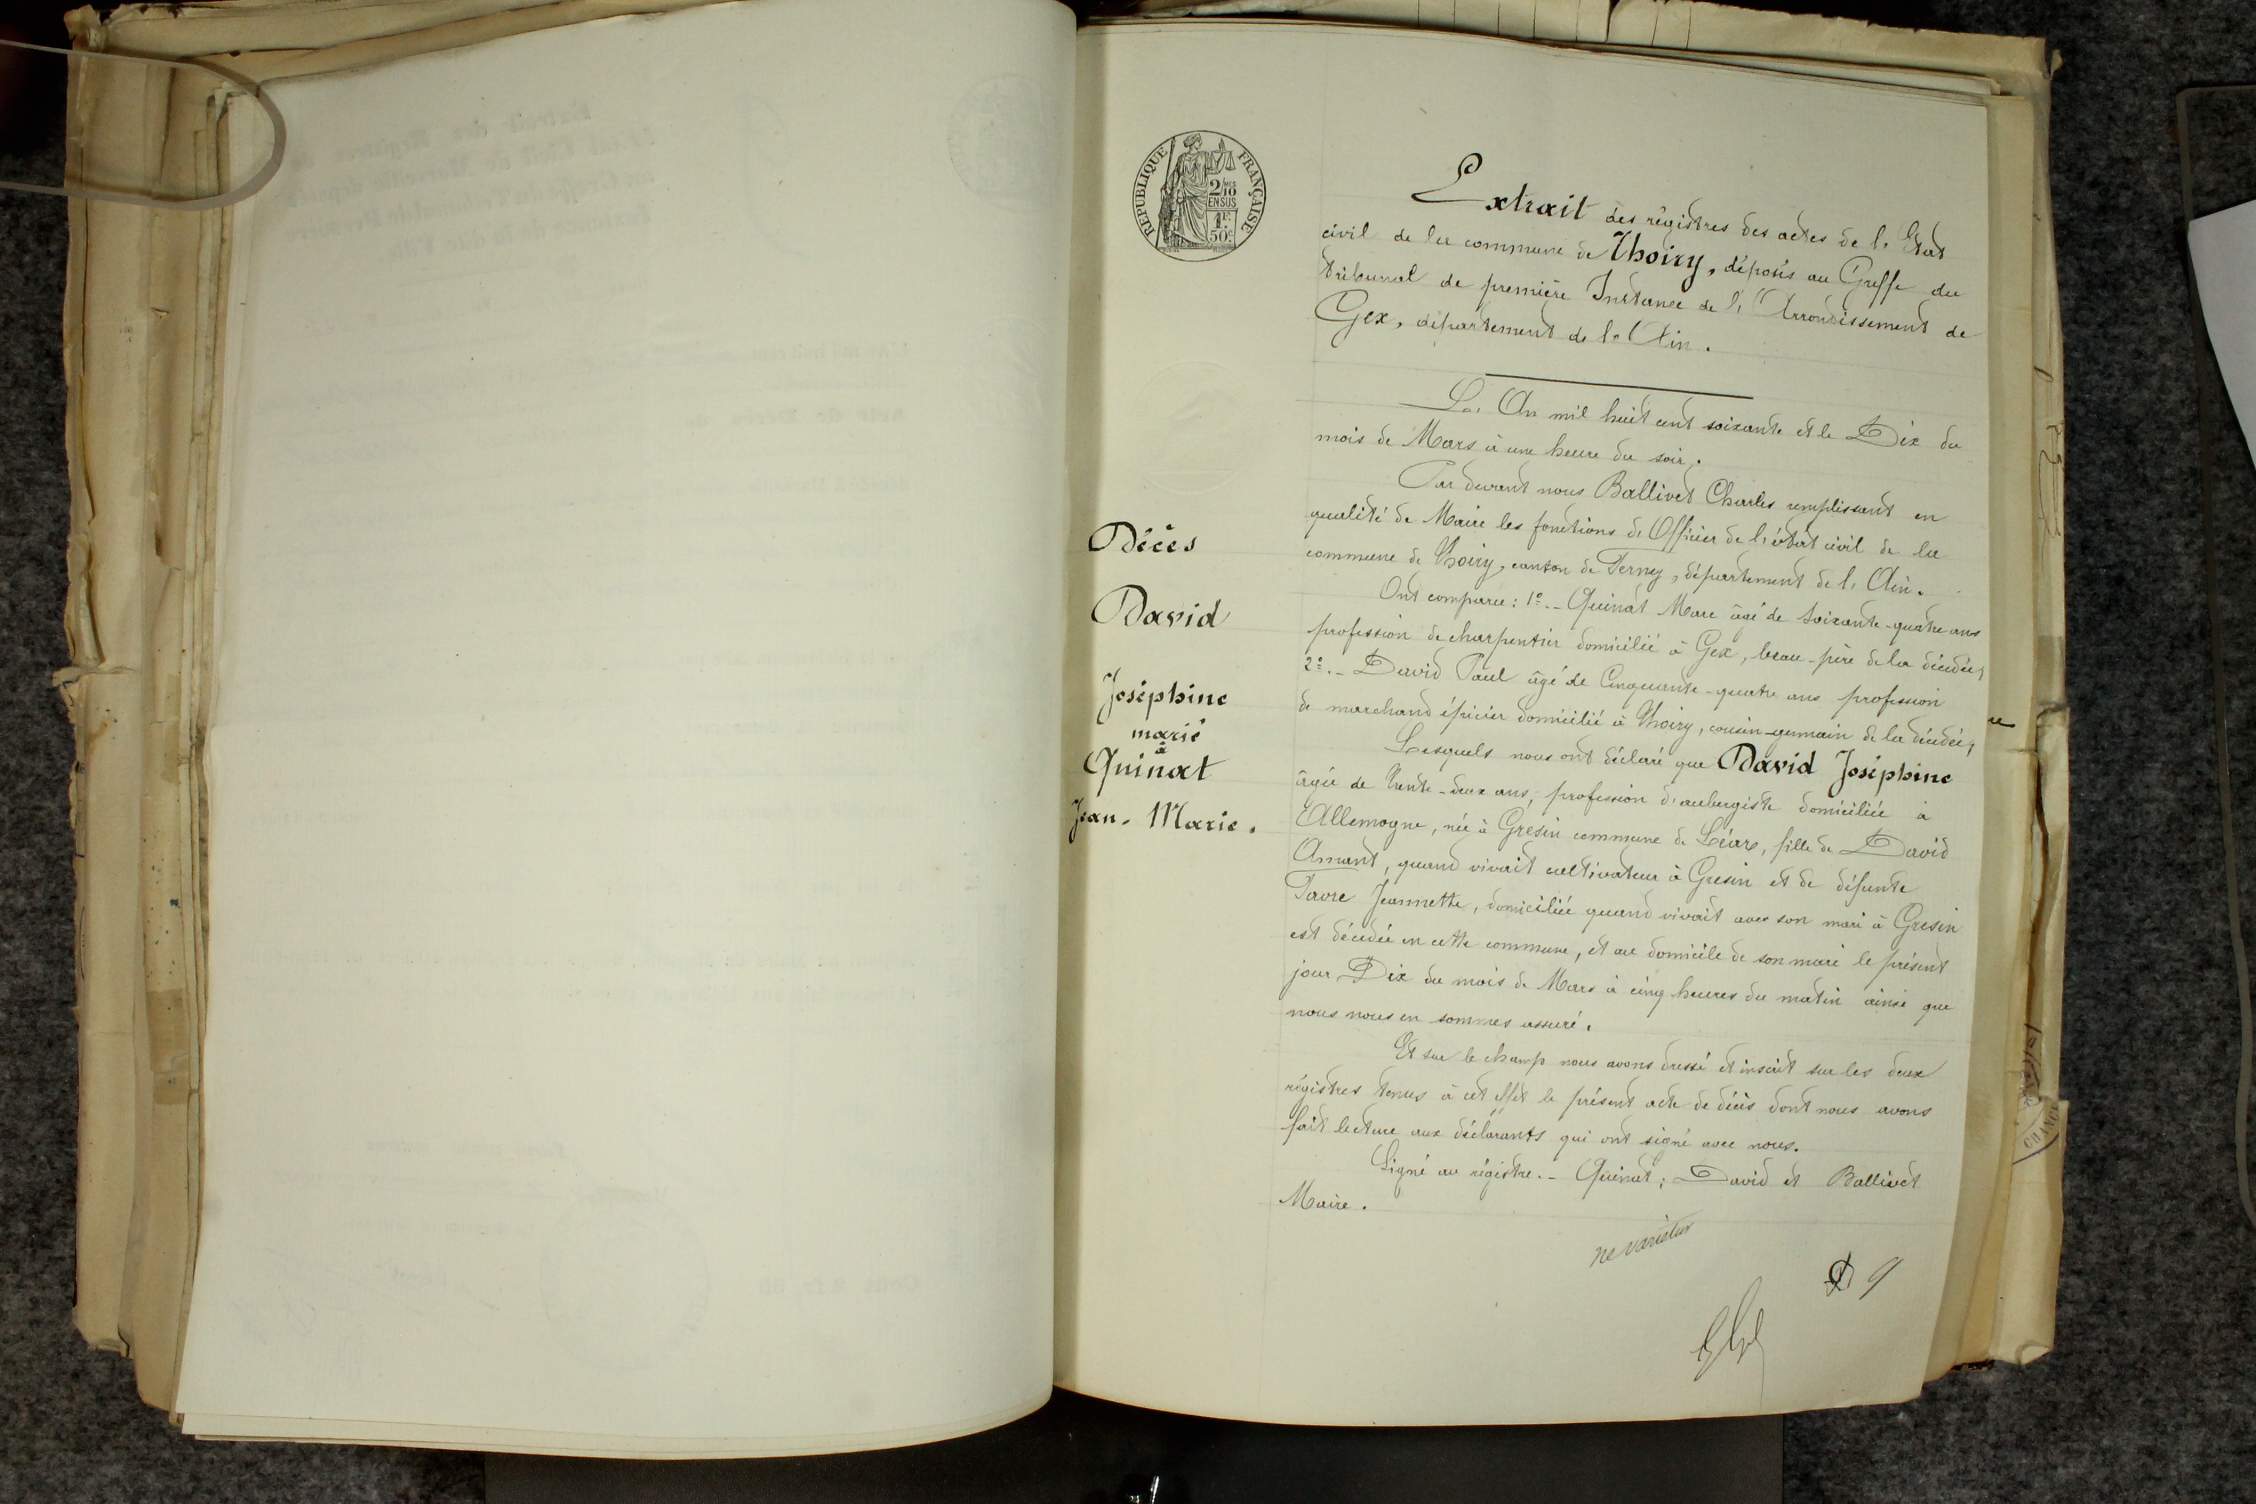 REPUBLIQUE FRANÇAISE
2/10
MES
EN SUS
1F.
50c
Extrait des régistres des actes de l'Etat
civil de la commune de Thoiry, déposés au Greffe du
tribunal de première Instance de l'Arrondissement de
Gex, département de l'Ain.
L'An mil huit cent soixante et le Dix du
mois de Mars à une heure du soir.
Par devant nous Ballivet Charles remplissant en
qualité de Maire les fonctions d'Officier de l'état civil de la
commune de Thoiry, canton de Ferney, département de l'Ain.
Ont comparu : 1º.- Quinat Marc âgé de soixante-quatre ans
profession de charpentier domicilié à Gex, beau-père de la décédée,
2º.- David Paul âgé de Cinquante-quatre ans profession
de marchand épicier domicilié à Thoiry, cousin-germain de la décédée,
Lesquels nous ont déclaré que David Joséphine
âgée de trente-deux ans, profession d'aubergiste domiciliée à
Allemogne, née à Gresin commune de Léaz, fille de David
Amant, quand vivait cultivateur à Gresin et de défunte
Favre Jeannette, domiciliée quand vivait avec son mari à Gresin
est décédée en cette commune, et au domicile de son mari le présent
jour Dix du mois de Mars à cinq heures du matin ainsi que
nous nous en sommes assuré.
Et sur le champ nous avons dressé et inscrit sur les deux
régistres tenus à cet effet le présent acte de décès dont nous avons
fait lecture aux déclarants qui ont signé avec nous.
Signé au régistre.- Quinat; David et Ballivet
Maire.
Décès
David
Joséphine
marié
à
Quinat
Jean-Marie.
ne varietur